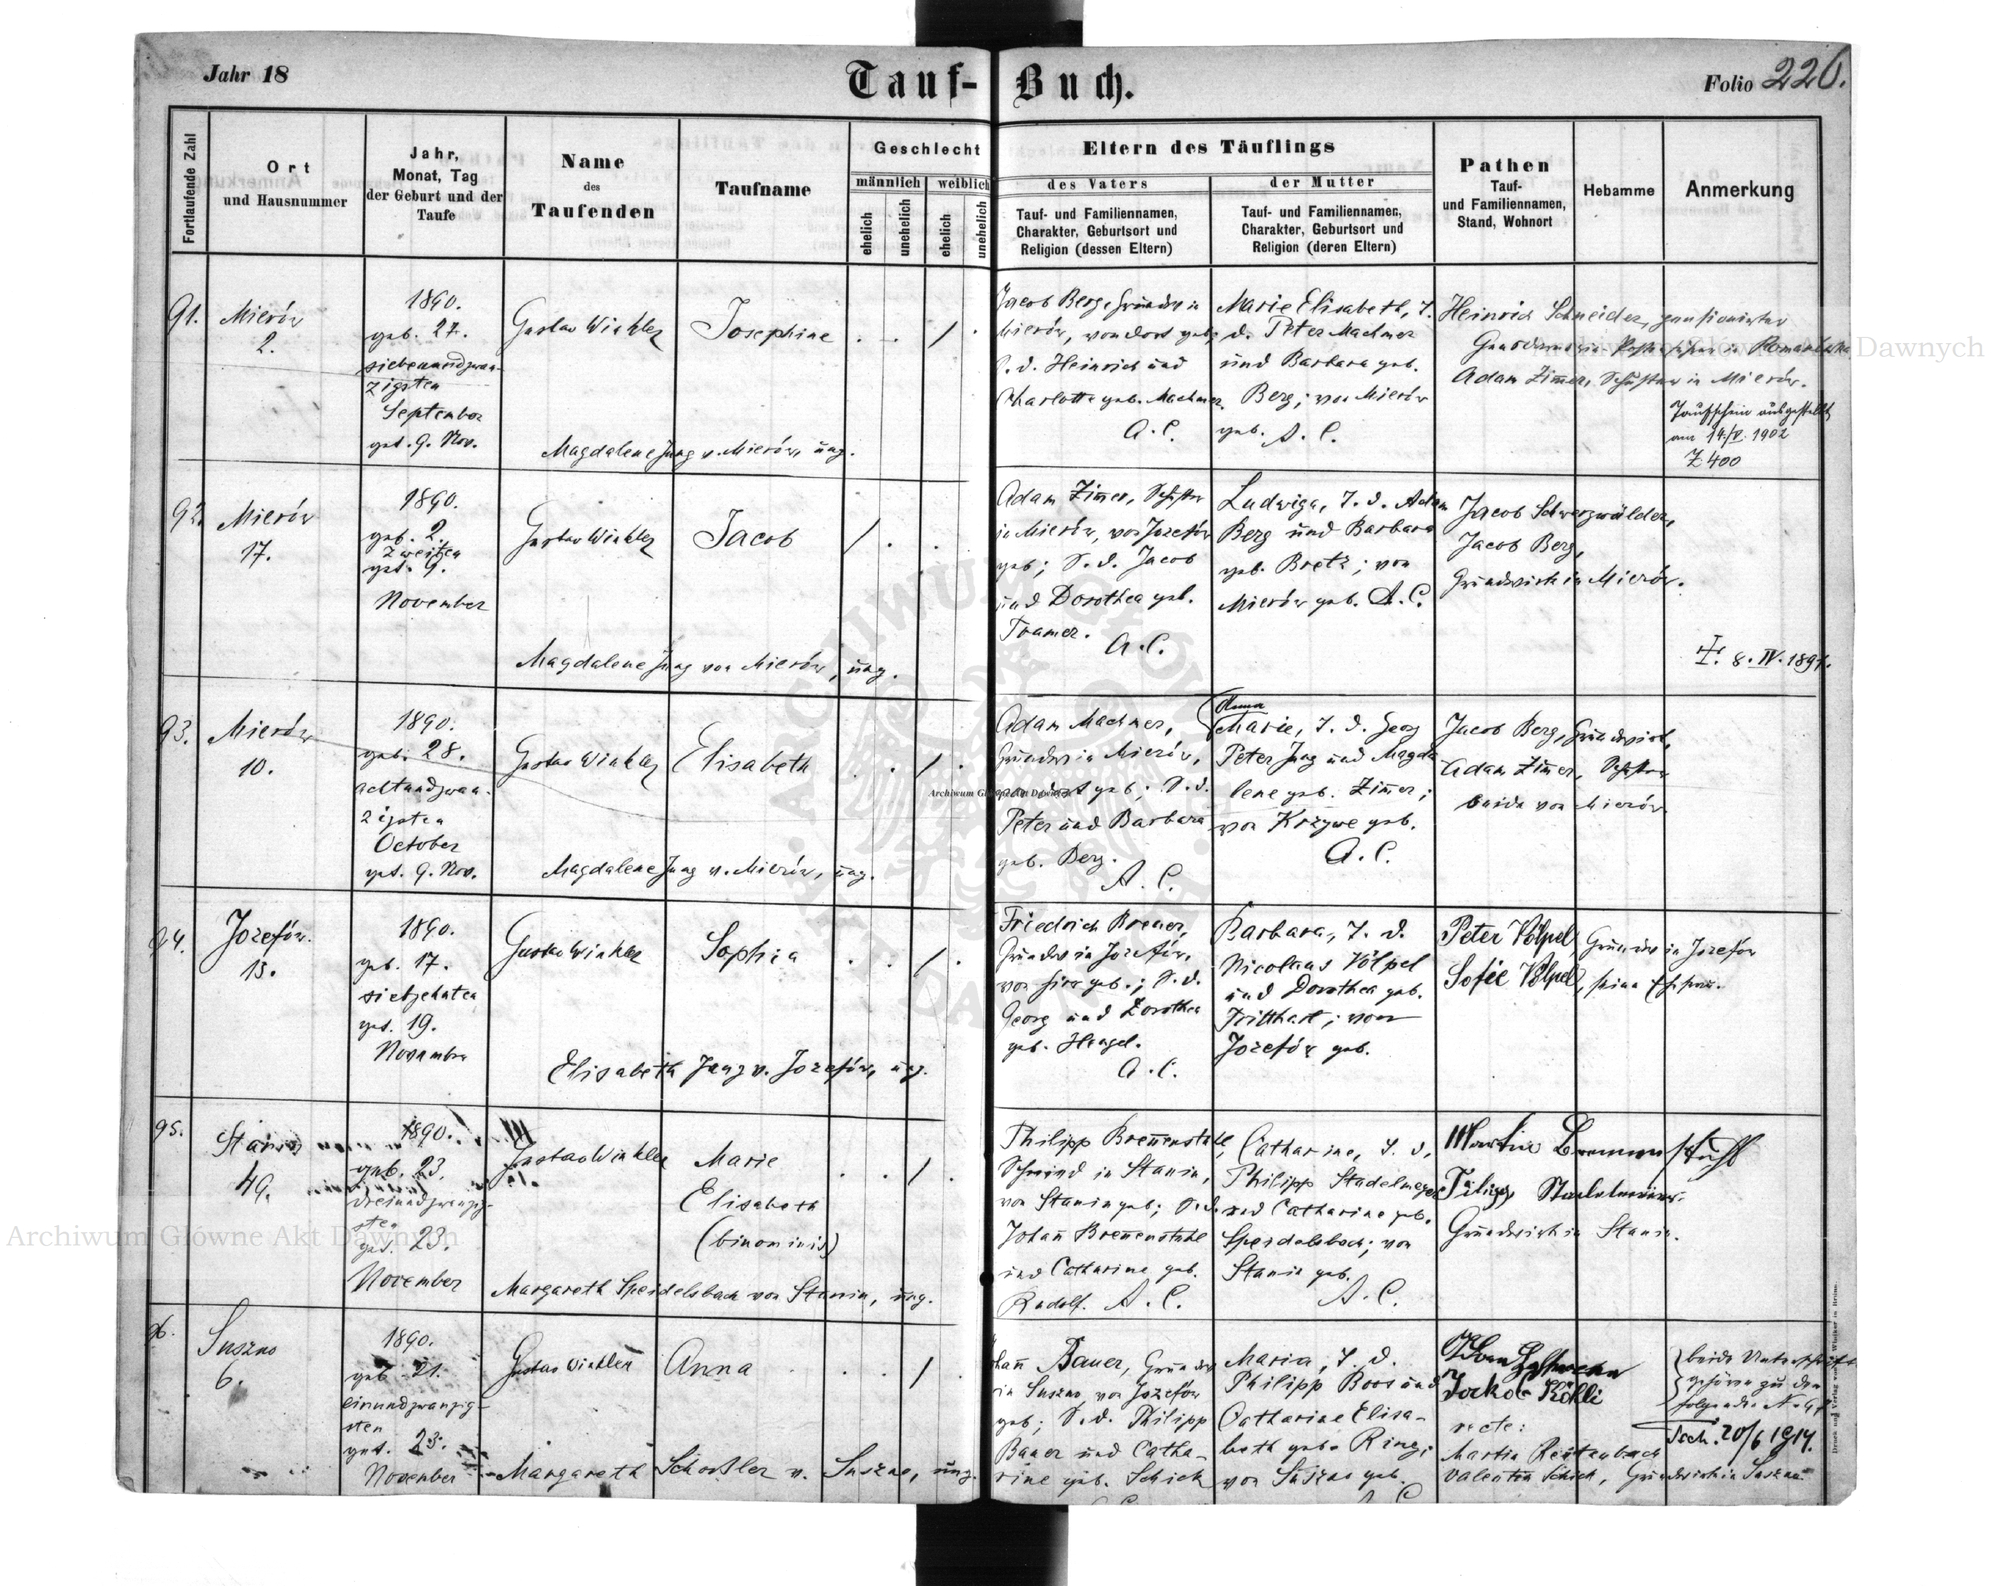 Jahr 18
Tauf-Buch.
Folio 226.
Fortlaufende Zahl
Ort
und Hausnummer
Jahr,
Monat, Tag
der Geburt und der
Taufe
Name
des
Taufenden
Taufname
Geschlecht
männlich
weiblich
ehelich
unehelich
ehelich
unehelich
Eltern des Täuflings
des Vaters
Tauf- und Familiennamen,
Charakter, Geburtsort und
Religion (dessen Eltern)
der Mutter
Tauf- und Familiennamen,
Charakter, Geburtsort und
Religion (deren Eltern)
Pathen
Tauf-
und Familiennamen,
Stand, Wohnort
Hebamme
Anmerkung
91.
Mierów
2.
1890.
geb. 27.
siebenundzwan-
zigsten
September
get. 9. Nov.
Gustav Winkler
Josephine
Magdalene Jung v. Mierów, ung.
Jacob Berg, Grundw in
Mierów, von dort geb;
S. d. Heinrich und
Charlotte geb. Machmer.
A. C.
Marie Elisabeth, T.
d. Peter Machmer
und Barbara geb.
Berg; von Mierów
geb. A. C.
Heinrich Schneider, pensionirter
in Romanówka
Adam Zimer, Schuster in Mierów.
Taufschein ausgestellt
am 14/V. 1902
Z 400
92.
Mierów
17.
1890.
geb. 2.
zweiten
get. 9.
November
Gustav Winkler
Jacob
Magdalene Jung von Mierów, ung.
Adam Zimer, Schuster
in Mierów, von Jozefów
geb; S. d. Jacob
und Dorothea geb.
Tramer.
A. C.
Ludwiga, T. d. Adam
Berg und Barbara
geb. Bretz; von
Mierów geb. A. C.
Jacob Schwarzwälder,
Jacob Berg,
Grundwirth in Mierów.
8. IV. 1897.
93.
Mierów
10.
1890.
geb. 28.
achtundzwan-
zigsten
October
get. 9. Nov.
Gustav Winkler
Elisabeth
Magdalene Jung v. Mierów, ung.
Adam Machmer,
Grundw in Mierów,
von dort geb; S. d.
Peter und Barbara
geb. Berg.
A. C.
Anna
Marie, T. d. Georg
Peter Jung und Magda
lene geb. Zimer;
von Krzywe geb.
A. C.
Jacob Berg, Grundwirt,
Adam Zimer, Schuster
beide von Mierów.
94.
Jozefów.
13.
1890.
geb. 17.
siebzehnten
get. 19.
November
Gustav Winkler
Sophia
Elisabeth Jung v. Jozefów, ung.
Friedrich Bremer,
Grundw in Jozefów,
von hier geb.; S. d.
Georg und Dorothea
geb. Hengel.
A. C.
Barbara, T. d.
Nicolaus Völpel
und Dorothea geb.
Tritthart; von
Jozefów geb.
Peter Völpel, Grundw in Jozefów
Sofie Völpel, seine Ehefrau.
95.
Stanin
49.
1890.
geb. 23.
dreiundzwanzig-
sten
get. 23.
November
Gustav Winkler
Marie
Elisabeth
(binominis)
Margareth Speidelsbach von Stanin, ung.
Philipp Brennenstuhl,
Schmied in Stanin,
von Stanin geb; S. d.
Johan Brennenstuhl
und Catharine geb.
Rudolf. A. C.
Catharine, T. d.
Philipp Stadelmeyer
und Catharine geb.
Speidelsbach; von
Stanin geb.
A. C.
Martin Brennenstuhl
Filipp Stadelmeier.
Grundwirth in Stanin.
96.
Suszno
6.
1890.
geb. 21.
einundzwanzig-
sten
get. 23.
November
Gustav Winkler
Anna
Margareth Schoßler v. Suszno, ung.
Johann Bauer, Grundw
in Suszno, von Jozefów
geb; S. d. Philipp
Bauer und Catha-
rine geb. Schick
Maria, T. d.
Philipp Boos und
Catharine Elisa-
beth geb. Ring;
von Suszno geb.
A. C.
recte:
Martin Reutenbach
Valentin Schick, Grundwirth in Suszno.
beide Unterschriften
gehören zu den
Tsch. 20/6 1914.
Archiwum Główne Akt Dawnych
Archiwum Główne Akt Dawnych
Archiwum Główne Akt Dawnych